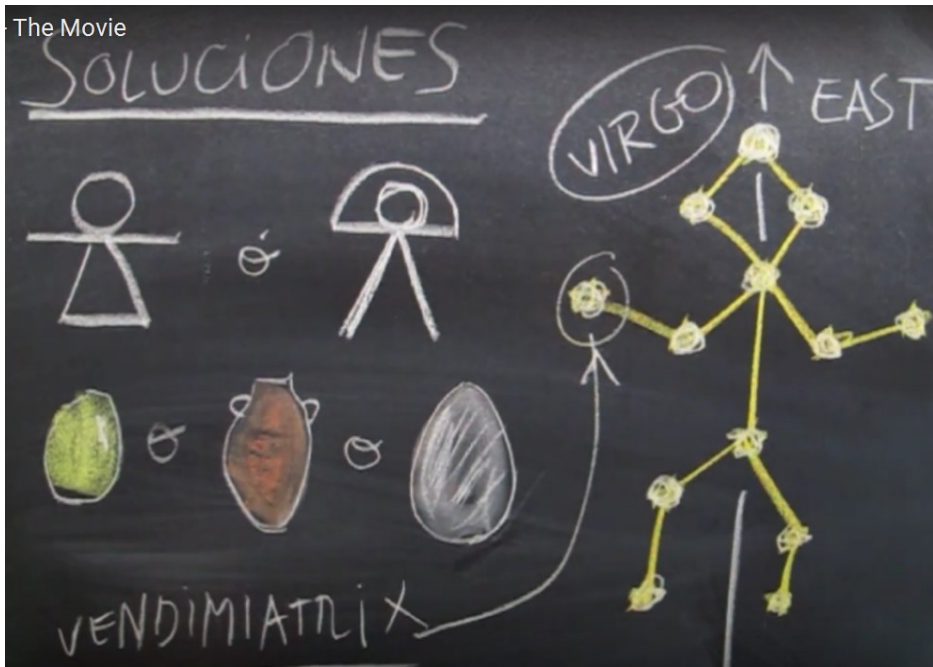 - The Movie
SOLUCIONES
VIRGO
EAST
ó
o
o
VENDIMIATRIX